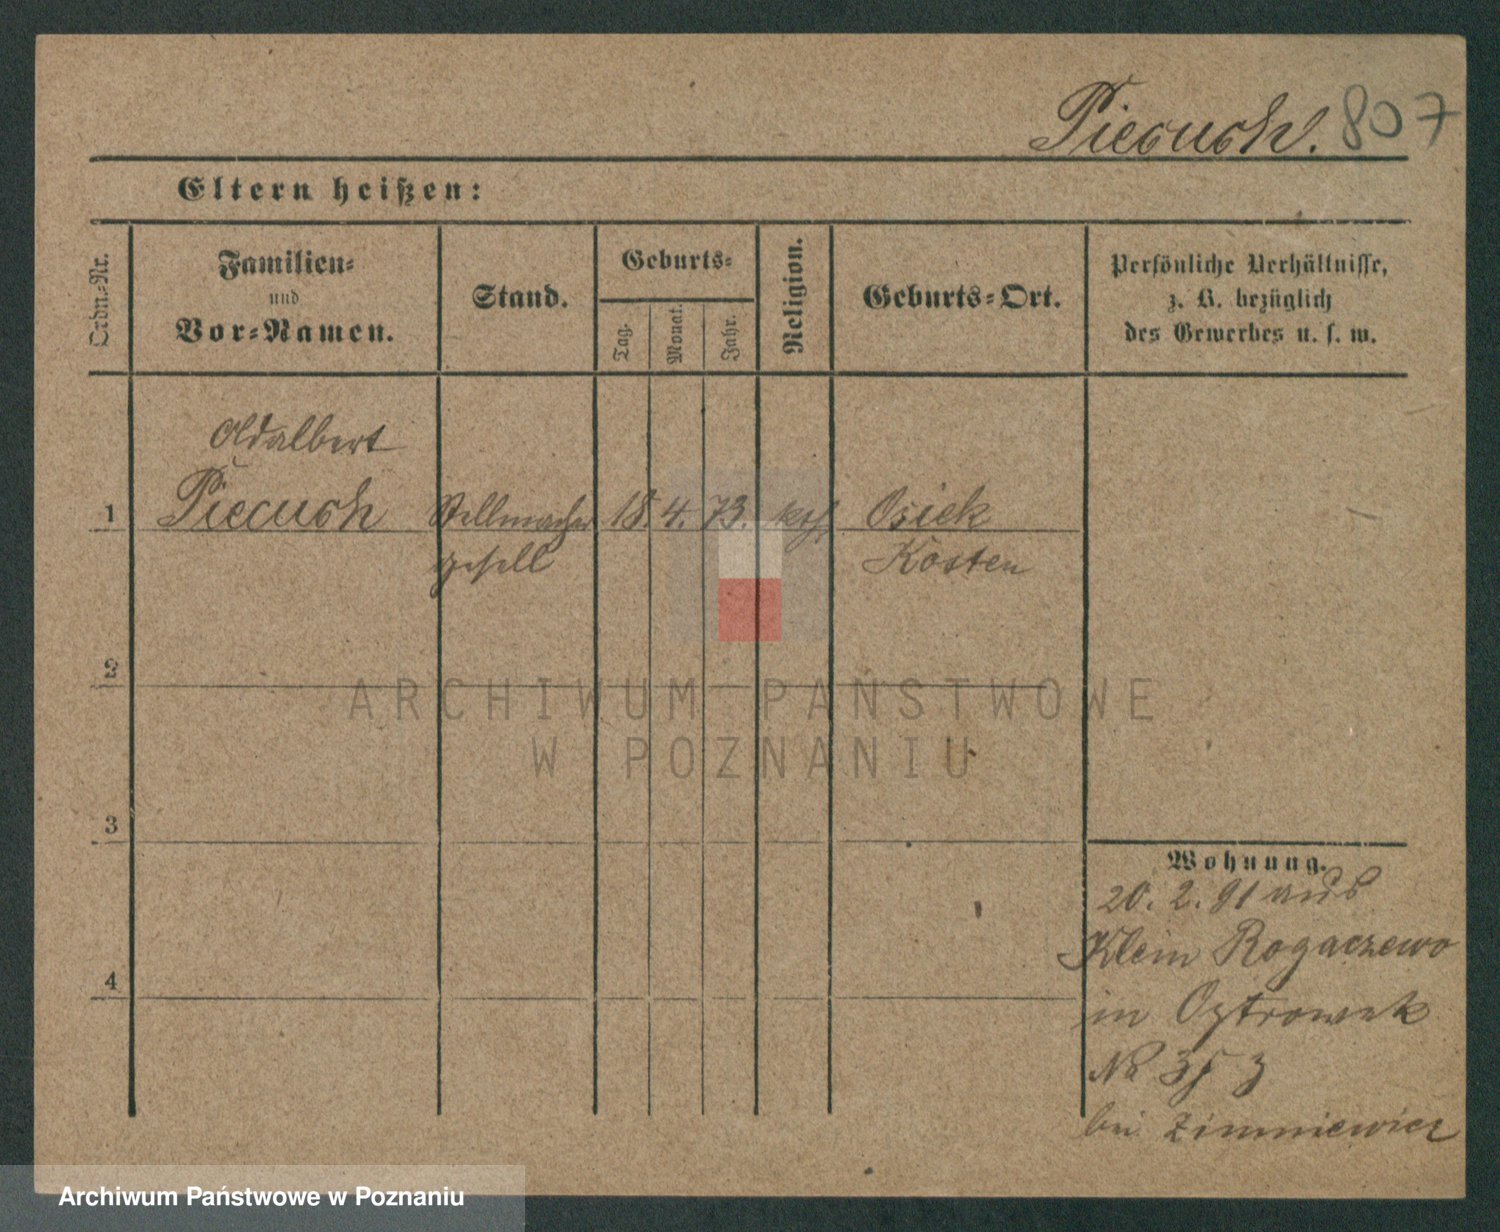 Piecuch. 807
Eltern heißen:
Ordn.=Nr.
Familien=
und
Vor=Namen.
Stand.
Geburts=
Tag.
Monat.
Jahr.
Religion.
Geburts=Ort.
Persönliche Verhältnisse,
z. B. bezüglich
des Gewerbes u. s. w.
Adalbert
1 Piecuch Stellmacher 18. 4. 73. kth Osiek
gesell Kosten
2
3
4
Wohnung.
20. 2. 91 aus
Klein Rogaczewo
in Ostrowek
No 3
bei Zimniewicz
ARCHIWUM PAŃSTWOWE
W POZNANIU
Archiwum Państwowe w Poznaniu